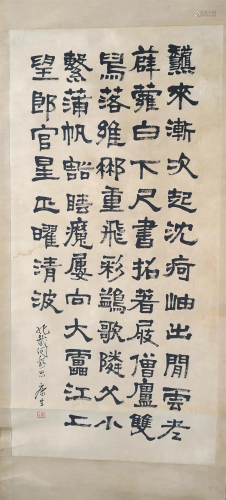 驚來漸次起沈疴岫出閒雲老
薜蘿白下尺書招著屐僧廬雙
舄落維梛重飛彩鷁歌隣父小
繫蒲帆豁睡魔屢向大靁江上
望郎官星正曜清波
康生